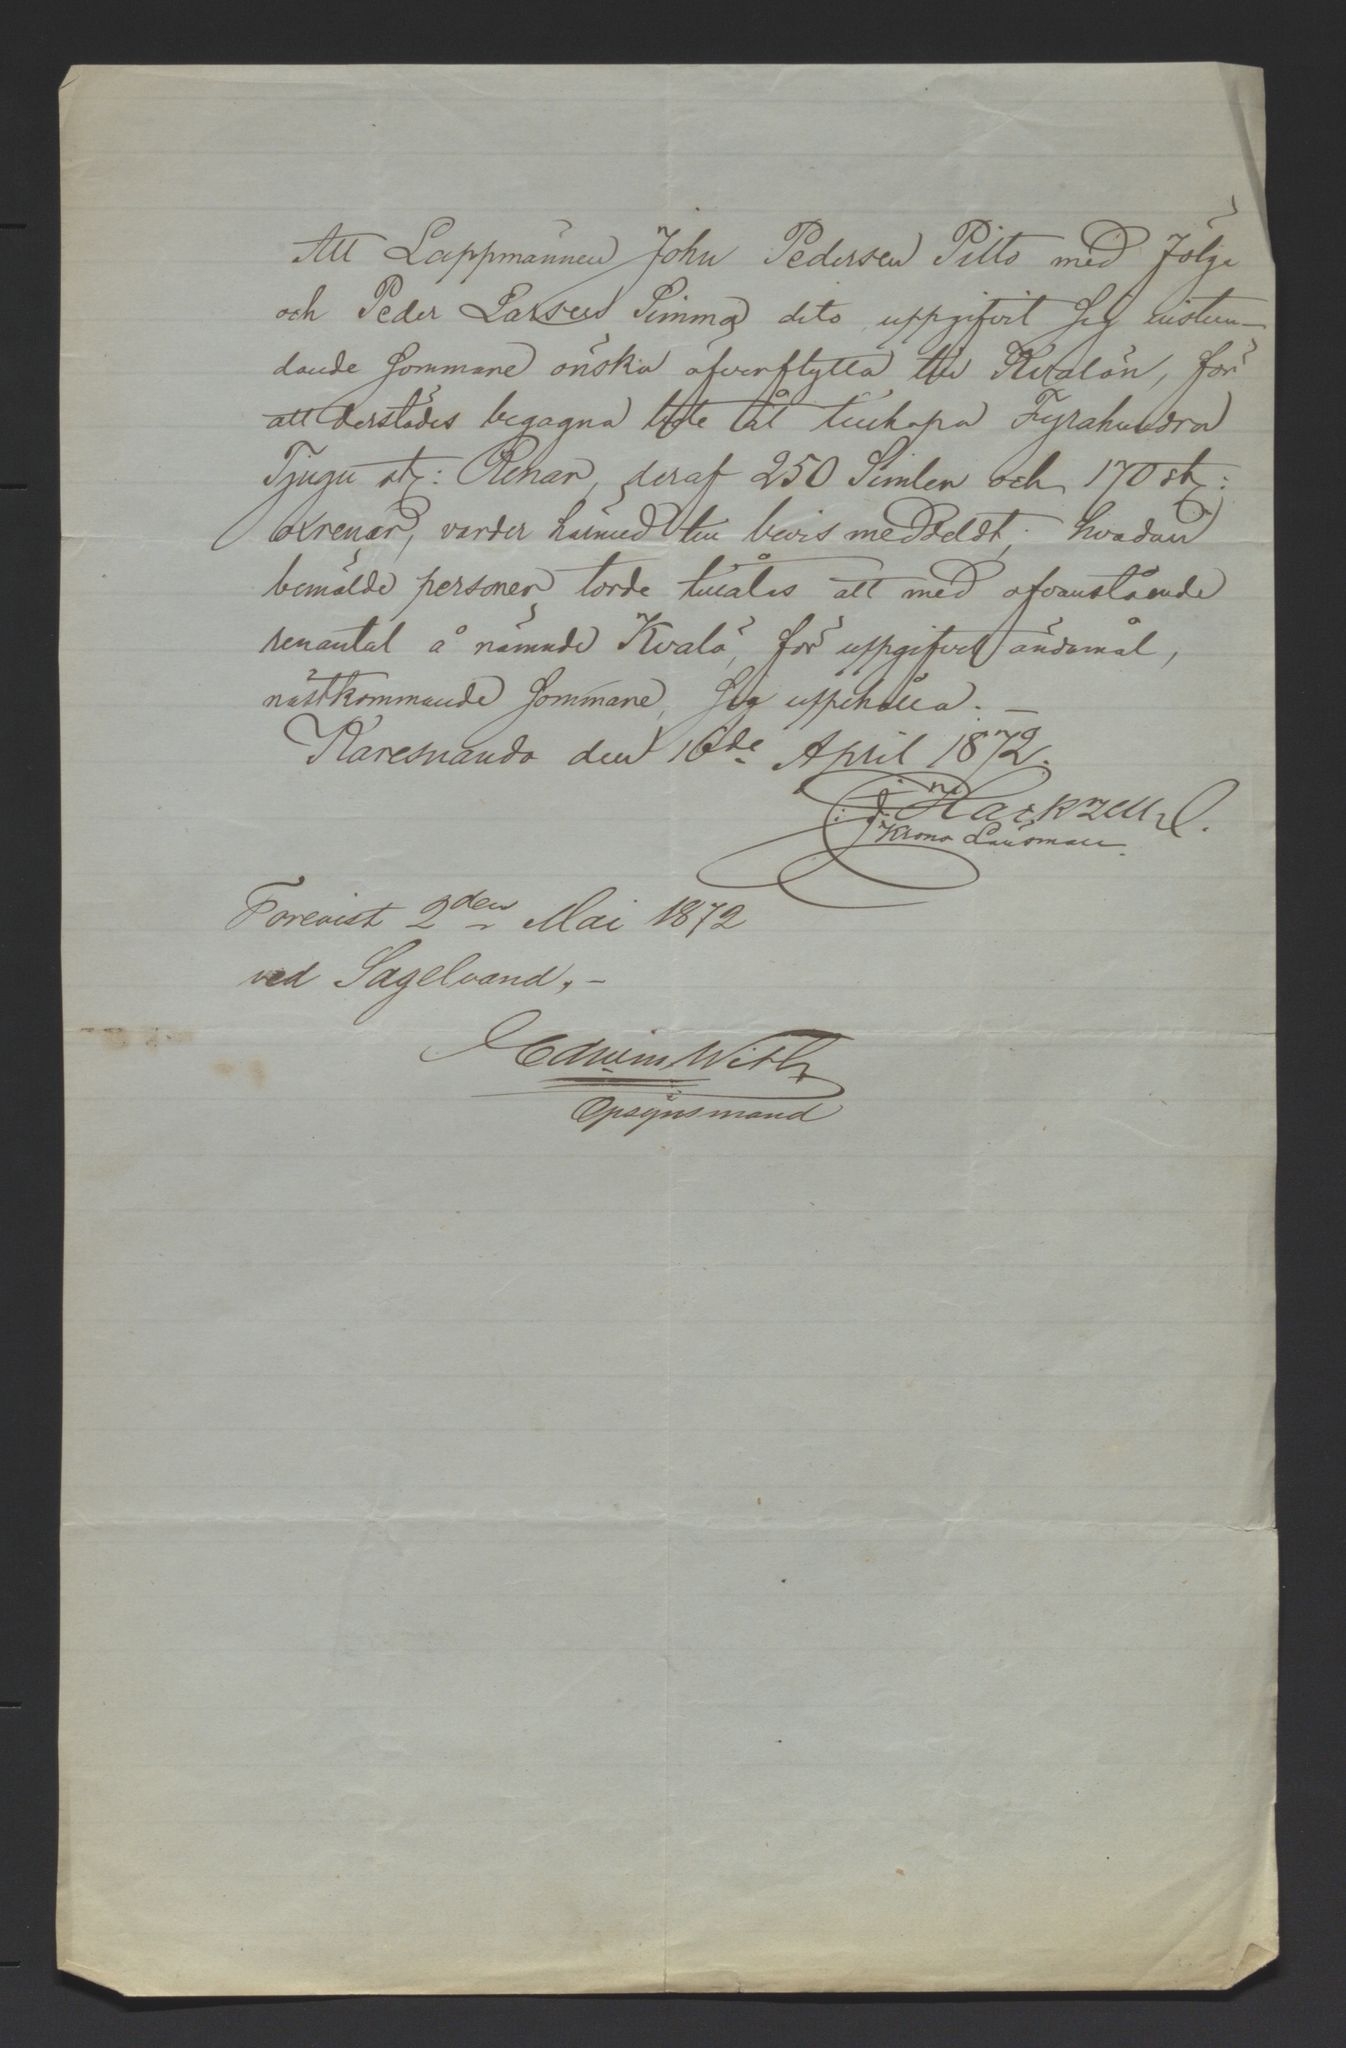 Att Lappmännen John Pedersen Pilto med följe
och Peder Larsens Simma dito uppgifvit Sig instun-
dande Sommare önska öfverflytta till Kvalön, för
att derstädes begagna bete åt tillhopa Fyrahundra
Tjugu st: Renar, deraf 250 Simlen och 170 st:
oxrenar, varder härmed till bevis meddeldt, hvadan
bemälde personer torde tillåtas att med ofvanstående
renantal å nämnde Kvalö, för uppgifvet ändamål,
nästkommande Sommare, Sig uppehålla. —
Karesuando den 16de April 1872.
Hackzell.
Krono Länsman.
Forevist 2den Mai 1872
ved Sagelvand. –
Edwin With
Opsynsmand